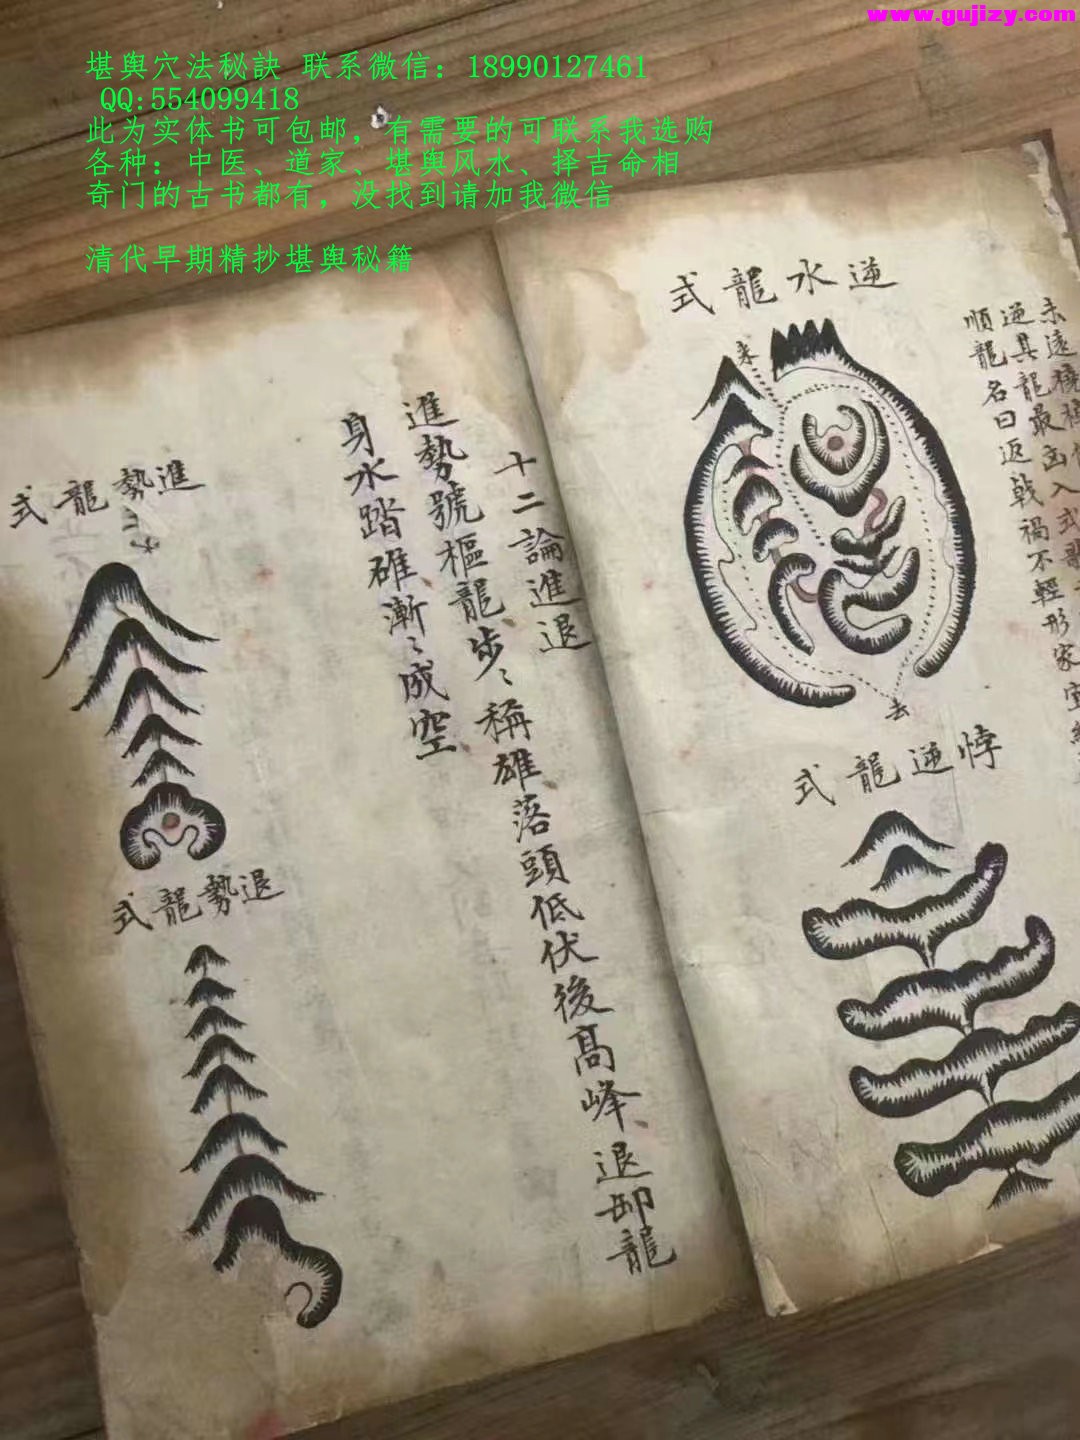 www.gujizy.com
堪舆穴法秘訣 联系微信：18990127461
QQ:554099418
此为实体书可包邮，有需要的可联系我选购
各种：中医、道家、堪舆风水、择吉命相
奇门的古书都有，没找到请加我微信
清代早期精抄堪舆秘籍
逆水龍式
来
去
悖逆龍式
順龍名曰返戟禍不輕形家宜
逆其龍最凶入式
十二論進退
進勢號樞龍步〻稱雄落頭低伏後高峰退卸龍
身水踏碓漸〻成空
進勢龍式
退勢龍式